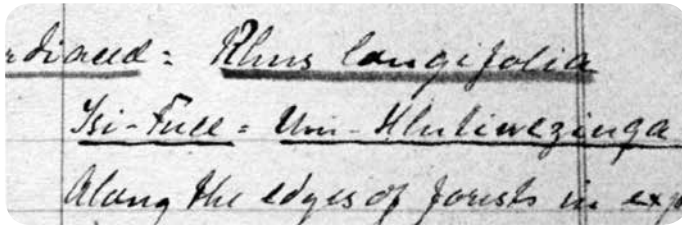 = Rhus longifolia
Isi-Fuce = Um-Hlutiwezinga
Along the edges of forests in exp